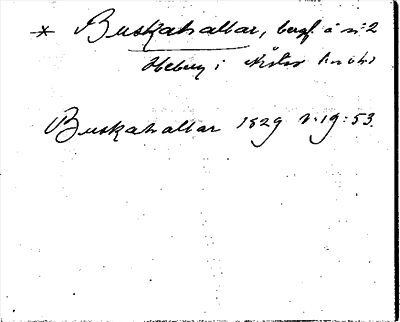 * Buskahallar, bergf. å nº 2
Heberg i
Buskahallar 1829 N: 19: 53.